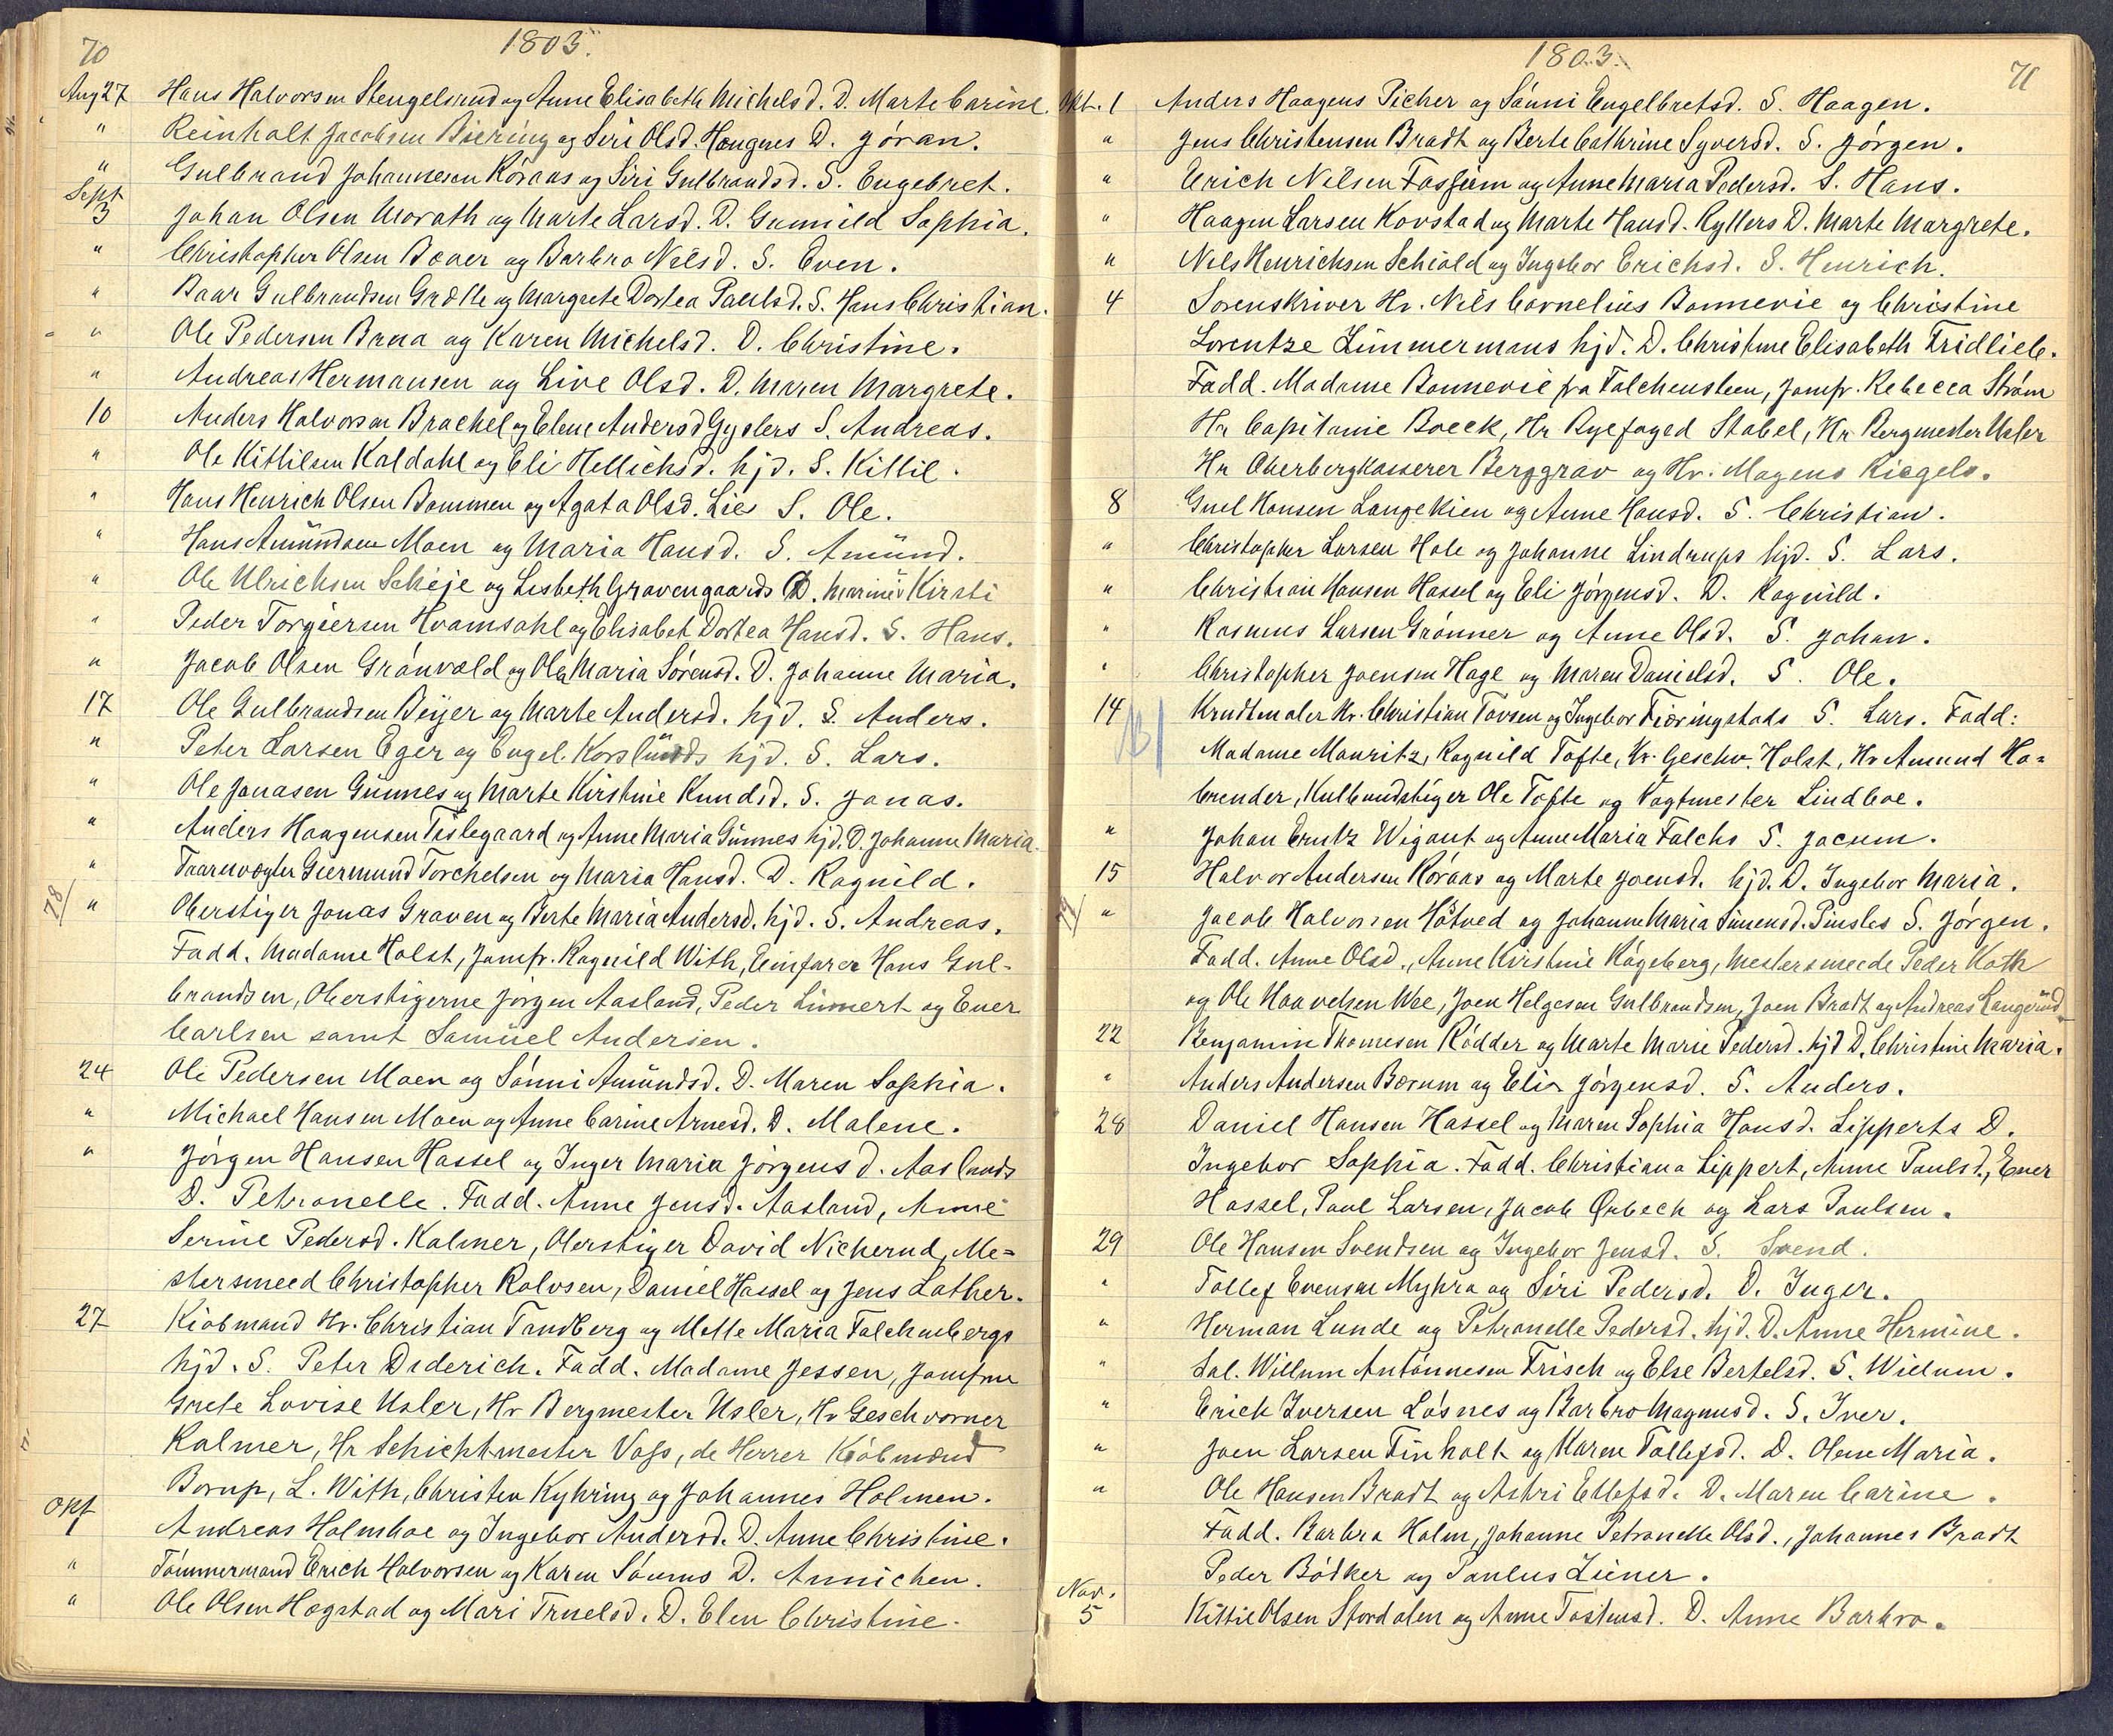 70
1803.
Aug 27 Hans Halvorsen Stengelsrud og Anne Elisabeth Michelsd. D. Marte Carine.
" Reinholt Jacobsen Biering og Siri Olsd. Haugnes D. Jøran.
" Gulbrand Johannesen Røraas og Siri Gulbrandsd. S. Engebret.
Sept 3 Johan Olsen Morath og Marte Larsd. D. Gunnild Sophia.
" Christopher Olsen Bæver og Barbro Nilsd. S. Even.
" Baar Gulbrandsen Grøtte og Margrete Dortea Paulsd. S. Hans Christian.
" Ole Pedersen Braa og Karen Michelsd. D. Christine.
" Andreas Hermansen og Live Olsd. D. Maren Margrete.
10 Anders Halvorsen Brachel og Elene Andersd Gyslers S. Andreas.
" Ole Kittilsen Kaldahl og Eli Hellichsd. hjd. S. Kittil.
" Hans Henrich Olsen Bommen og Agata Olsd. Lies S. Ole.
" Hans Amündsen Moen og Maria Hansd. S. Amünd.
" Ole Ulrichsen Scheje og Lisbeth Gravengaards D. Marine Kirsti
" Peder Torgiersen Hvamsahl og Elisabet Dortea Hansd. S. Hans.
" Jacob Olsen Grønvæld og Ola Maria Sørensd. D. Johanne Maria.
17 Ole Gulbrandsen Beyer og Marte Andersd. hjd. S. Anders.
" Peter Larsen Eger og Engel Korslunds hjd. S. Lars.
" Ole Jonasen Günnes og Marte Kirstine Knudsd. S. Jonas.
" Anders Haagensen Teslegaard og Anne Maria Günnes hjd. D. Johanne Maria.
" Taarnvægter Giermund Torchelsen og Maria Hansd. D. Ragnild.
78/ " Oberstiger Jonas Graven og Berte Maria Andersd. hjd. S. Andreas.
Fadd. Madame Holst, Jomfr. Ragnild With, Einfarer Hans Gul-
brandsen, Oberstigerne Jørgen Aasland, Peder Linnert og Ener
Carlsen samt Samüel Andersen.
24 Ole Pedersen Moen og Sønni Amündsd. D. Maren Sophia.
" Michael Hansen Moen og Anne Carine Arnesd. D. Malene.
" Jørgen Hansen Hassel og Inger Maria Jørgensd. Aaslands
D. Petronelle. Fadd. Anne Jensd. Aasland, Anne
Serine Pedersd. Kalmer, Oberstiger David Nicherud, Me=
stersmeed Christopher Rolvsen, Daniel Hassel og Jens Lather.
27 Kiøbmand Hr. Christian Tandberg og Mette Maria Falchenbergs
hjd. S. Peter Diderich. Fadd. Madame Jessen, Jomfru
Grete Lovise Usler, Hr Bergmester Usler, Hr Geschvorner
Kalmer, Hr Schichtmester Voss, de Herrer Kiøbmænd
Borup, L. With, Christen Kyhring og Johannes Holmen.
Okt 1 Andreas Holmboe og Ingebor Andersd. D. Anne Christine.
" Tømmermand Erich Halvorsen og Karen Sørums D. Annichen.
" Ole Olsen Hægstad og Mari Truelsd. D. Elen Christine.
1803.
71
Okt. 1 Anders Haagens Picher og Sønni Engelbretsd. S. Haagen.
" Jens Christensen Bradt og Berte Cathrine Syversd. S. Jørgen.
" Erich Nilsen Fossum og Anne Maria Pedersd. S. Hans.
" Haagen Larsen Kovstad og Marte Hansd. Ryllers D. Marte Margrete.
" Nils Henrichsen Schiold og Ingebor Erichsd. S. Henrich.
4 Sorenskriver Hr. Nils Cornelius Bonnevie og Christine
Lorentze Zimmermans hjd. D. Christine Elisabeth Fridlieb.
Fadd. Madame Bonnevie fra Falchensteen, Jomfr. Rebecca Strøm
Hr Capitaine Boeck, Hr Byefoged Stabel, Hr Bergmester Usler
Hr Oberbergkasserer Berggrav og Hr. Mogens Riegels.
8 Guel Hansen Langekien og Anne Hansd. S. Christian.
" Christopher Larsen Hole og Johanne Lindrups hjd. S. Lars.
" Christian Hansen Hassel og Eli Jørgensd. D. Ragnild.
" Rasmus Larsen Grønner og Anne Olsd. S. Johan.
" Christopher Joensen Hage og Maren Danielsd. S. Ole.
14 Krudtmaler Hr. Christian Tovsen og Ingebor Fiæringstads S. Lars. Fadd:
Madame Mauritz, Ragnild Tofte, Hr. Geschv. Holst, Hr Amund Ha=
brender, Kulbrudstiger Ole Tofte og Vagtmester Lindboe.
" Johan Erntz Wigant og Anne Maria Falchs S. Jacum.
15 Halvor Andersen Røraas og Marte Joensd. hjd. D. Ingebor Maria.
79/ " Jacob Halvorsen Høtved og Johanne Maria Simensd. Pinsles S. Jørgen.
Fadd. Anne Olsd., Anne Kirstine Kageberg, Mestersmeede Peder Koth
og Ole Haavelsen Wee, Joen Helgesen Gulbrandsen, Joen Bradt og Andreas Langerüd
22 Benjamin Thomesen Rødder og Marte Marie Pedersd. hjd D. Christine Maria.
" Anders Andersen Bærum og Elia Jørgensd. S. Anders.
28 Daniel Hansen Hassel og Maren Sophia Hansd. Lipperts D.
Ingebor Sophia. Fadd. Christiana Lippert, Anne Paulsd., Ener
Hassel, Poul Larsen, Jacob Ørbech og Lars Paulsen.
29 Ole Hansen Svendsen og Ingebor Jensd. S. Svend.
" Tollef Evensen Myhra og Siri Pedersd. D. Inger.
" Herman Lunde og Petronelle Pedersd. hjd. D. Anne Hermine.
" Sal. Willum Antønnesen Frisch og Else Bertelsd. S. Willum.
" Erich Iversen Løsnes og Barbro Magnusd. S. Iver.
" Joen Larsen Finholt og Karen Tollefsd. D. Olene Maria.
" Ole Hansen Bradt og Astri Ellefsd. D. Maren Carine.
Fadd. Barbra Holm, Johanne Petronelle Olsd., Johannes Bradt
Peder Bødker og Paulus Ziener.
Nov. 5 Kittil Olsen Stordalen og Anne Tostensd. D. Anne Barbro.